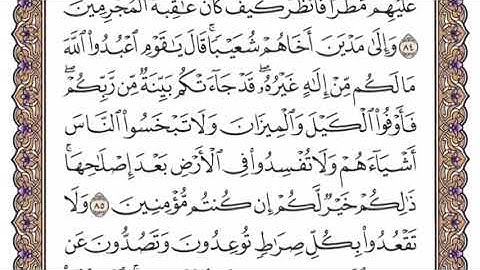 عَلَيْهِم مَّطَرًا فَٱنظُرْ كَيْفَ كَانَ عَٰقِبَةُ ٱلْمُجْرِمِينَ
٨٤ وَإِلَىٰ مَدْيَنَ أَخَاهُمْ شُعَيْبًا ۗ قَالَ يَٰقَوْمِ ٱعْبُدُوا۟ ٱللَّهَ
مَا لَكُم مِّنْ إِلَٰهٍ غَيْرُهُۥ ۖ قَدْ جَآءَتْكُم بَيِّنَةٌ مِّن رَّبِّكُمْ ۖ
فَأَوْفُوا۟ ٱلْكَيْلَ وَٱلْمِيزَانَ وَلَا تَبْخَسُوا۟ ٱلنَّاسَ
أَشْيَآءَهُمْ وَلَا تُفْسِدُوا۟ فِى ٱلْأَرْضِ بَعْدَ إِصْلَٰحِهَا ۚ
ذَٰلِكُمْ خَيْرٌ لَّكُمْ إِن كُنتُم مُّؤْمِنِينَ ٨٥ وَلَا
تَقْعُدُوا۟ بِكُلِّ صِرَٰطٍ تُوعِدُونَ وَتَصُدُّونَ عَن